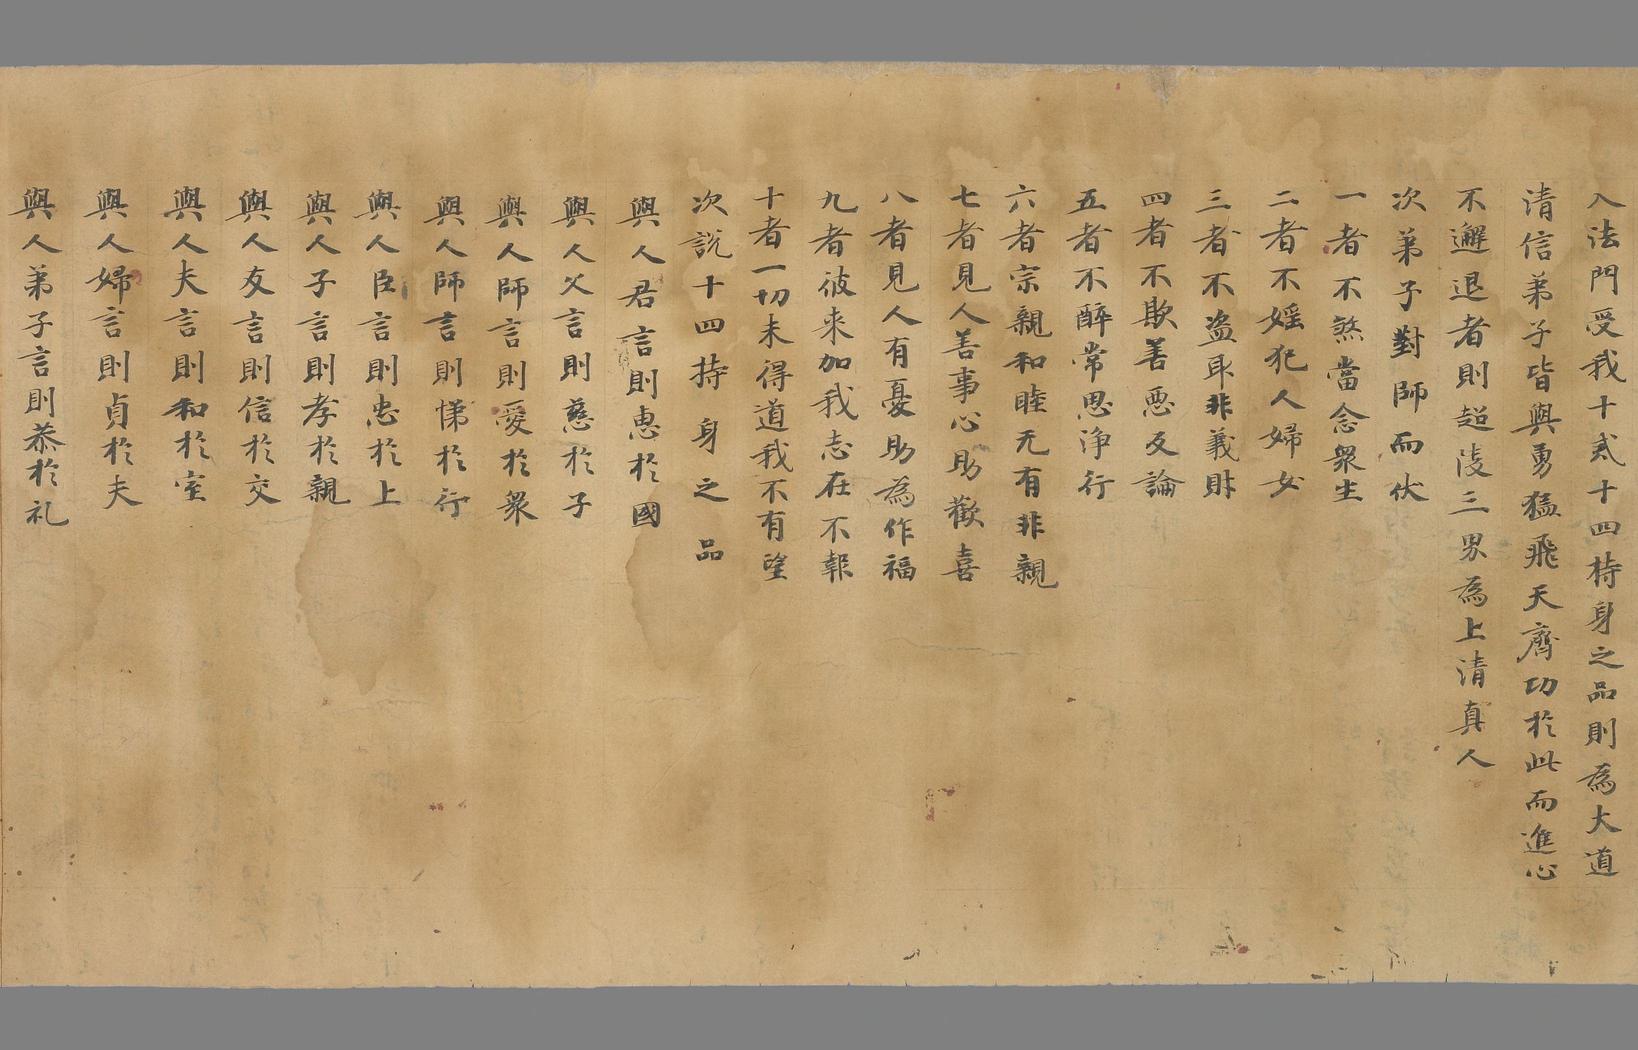 入法門受我十貳十四持身之品則為大道
清信弟子皆與勇猛飛天齊功於此而進心
不邂退者則超淩三界為上清真人
次弟子對師而伏
一者不煞當念衆生
二者不婬犯人婦女
三者不盜取非義財
四者不欺善惡反論
五者不醉常思浄行
六者宗親和睦无有非親
七者見人善事心助歡喜
八者見人有憂助為作福
九者彼来加我志在不報
十者一切未得道我不有望
次說十四持身之品
與人君言則惠於國
與人父言則慈於子
與人師言則愛於衆
與人師言則悌於行
與人臣言則忠於上
與人子言則孝於親
與人友言則信於交
與人夫言則和於室
與人婦言則貞於夫
與人弟子言則恭於礼